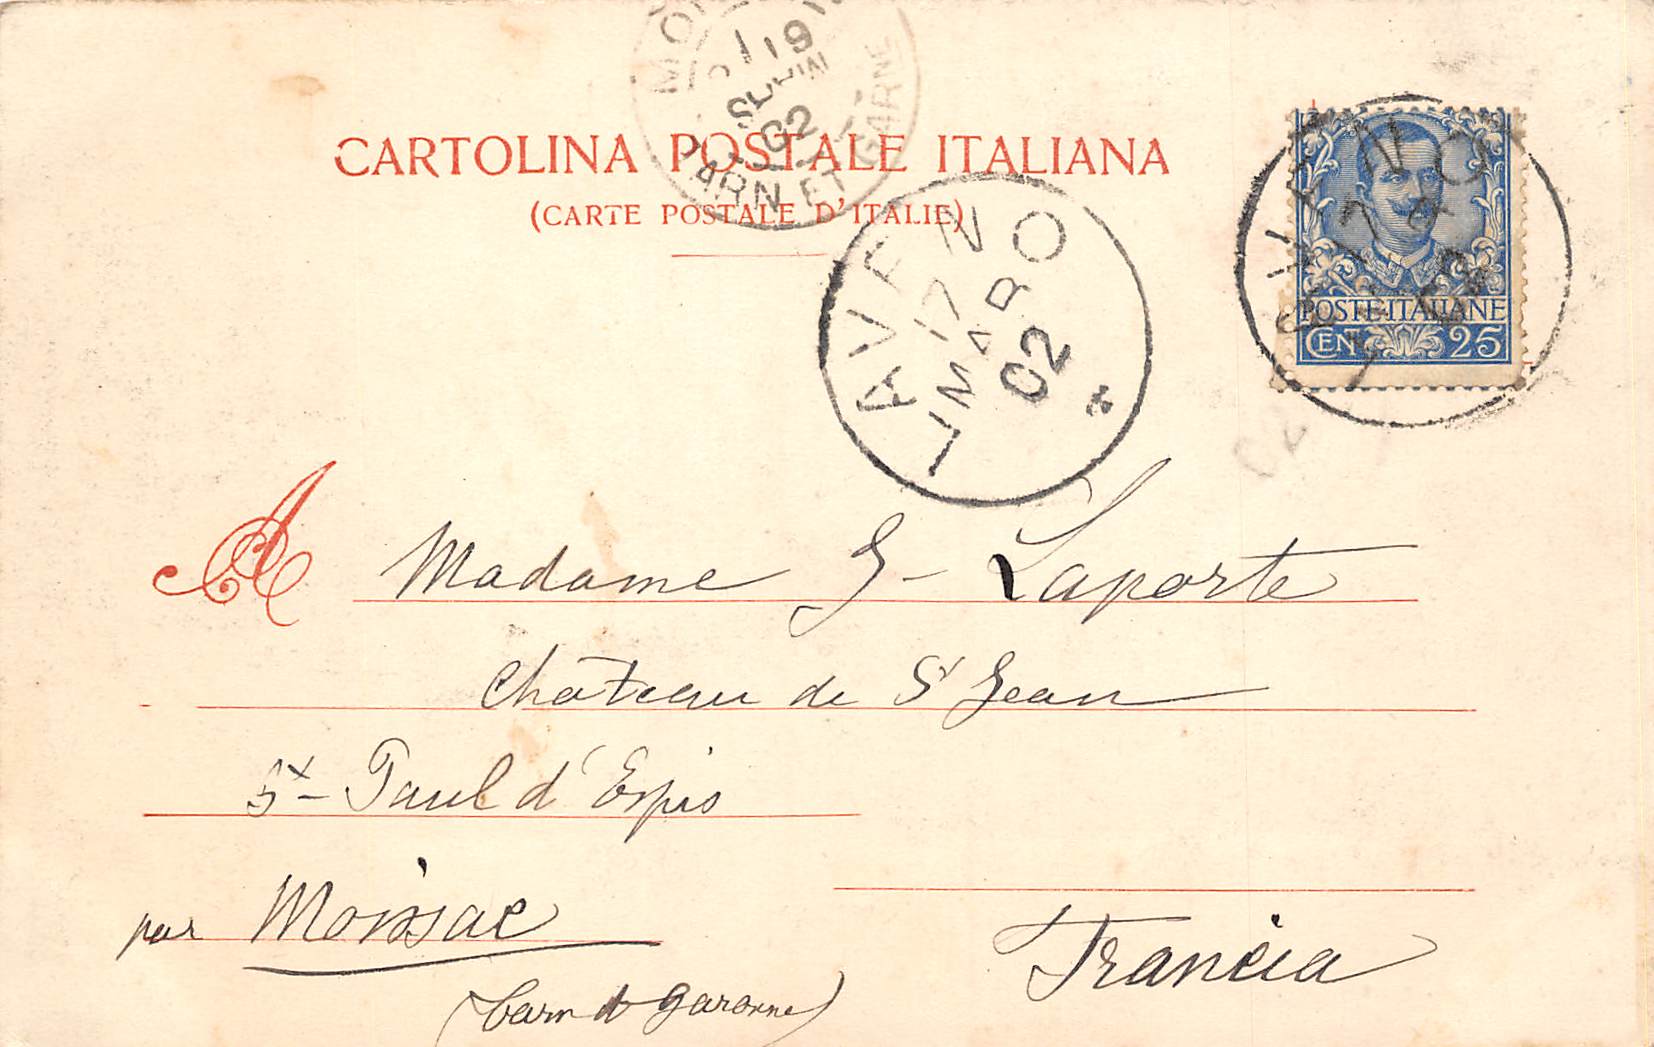 CARTOLINA POSTALE ITALIANA
(CARTE POSTALE D'ITALIE)
19
02
TARN ET GARNE
LAVENO
17 MAR
02
POSTE ITALIANE
CEN 25
02
A Madame G- Laporte
Château de St Jean
St- Paul d'Espis
par Moissac
(Tarn et Garonne)
Francia